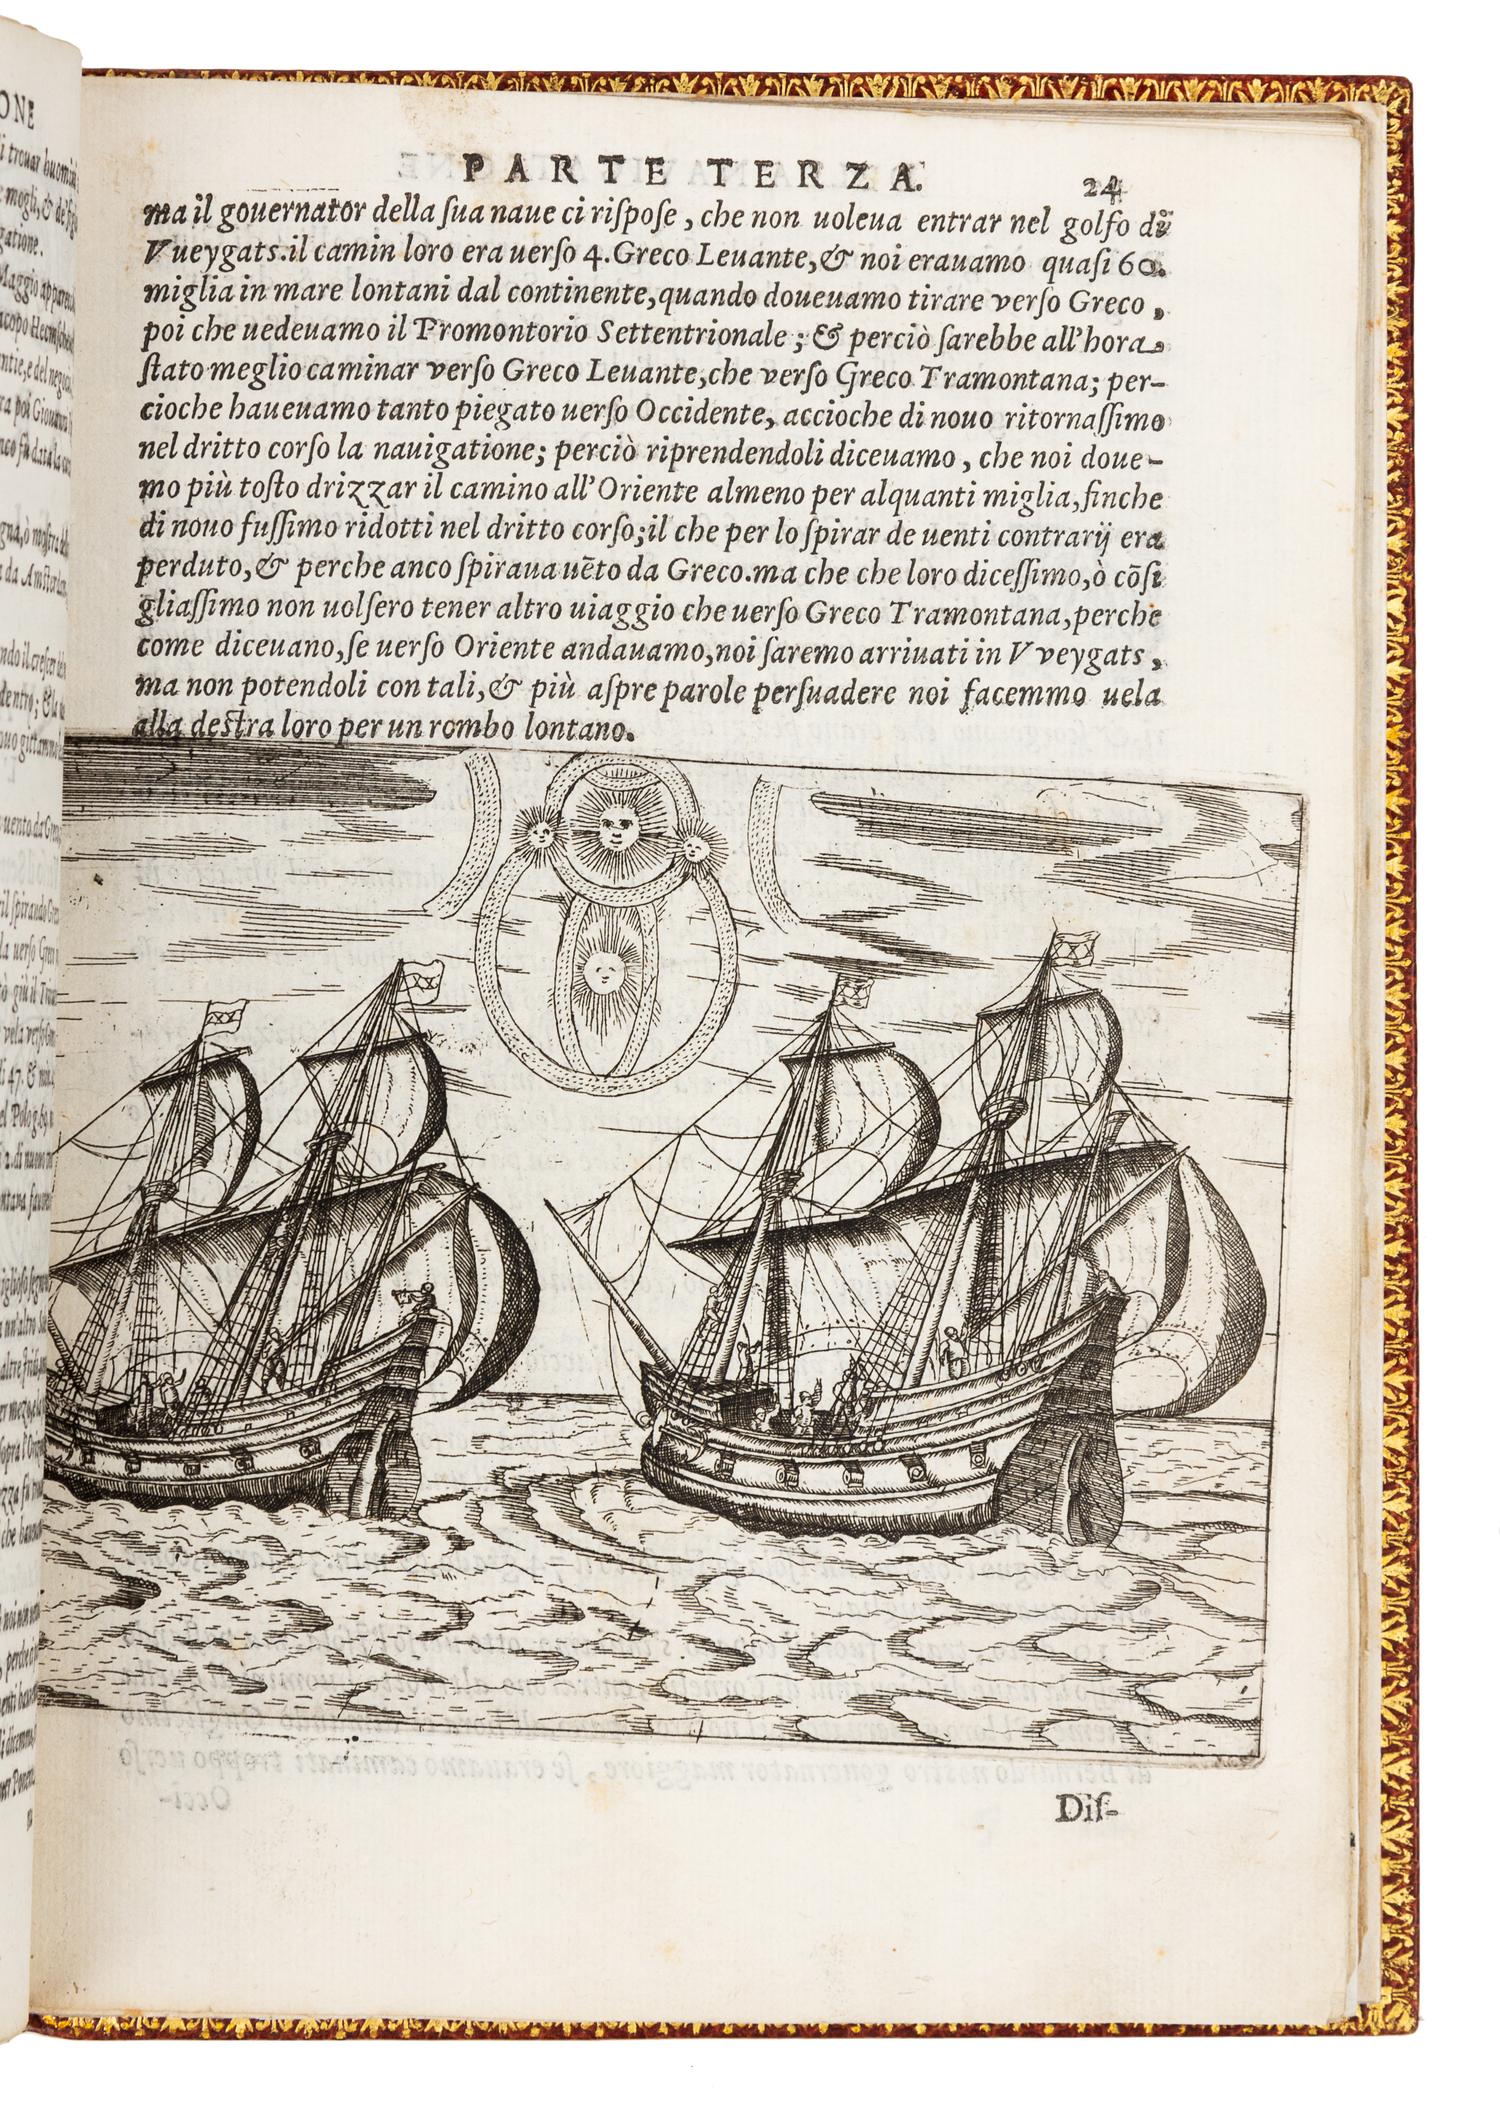 PARTE TERZA.
24
ma il gouernator della ſua naue ci riſpoſe, che non uoleua entrar nel golfo di
Vueygats.il camin loro era uerſo 4.Greco Leuante,& noi erauamo quaſi 60.
miglia in mare lontani dal continente,quando doueuamo tirare verſo Greco,
poi che uedeuamo il Promontorio Settentrionale ; & perciò ſarebbe all'hora
ſtato meglio caminar verſo Greco Leuante,che verſo Greco Tramontana; per-
cioche haueuamo tanto piegato uerſo Occidente, accioche di nouo ritornaſſimo
nel dritto corſo la nauigatione; perciò riprendendoli diceuamo, che noi doue-
mo più toſto drizzar il camino all'Oriente almeno per alquanti miglia,finche
di nouo fuſſimo ridotti nel dritto corſo;il che per lo ſpirar de uenti contrarij era
perduto,& perche anco ſpiraua uẽto da Greco.ma che che loro diceſſimo,ò cõſi
gliaſſimo non uolſero tener altro uiaggio che uerſo Greco Tramontana,perche
come diceuano,ſe uerſo Oriente andauamo,noi ſaremo arriuati in Vveygats,
ma non potendoli con tali,& più aſpre parole perſuadere noi facemmo uela
alla deſtra loro per un rombo lontano.
Diſ-